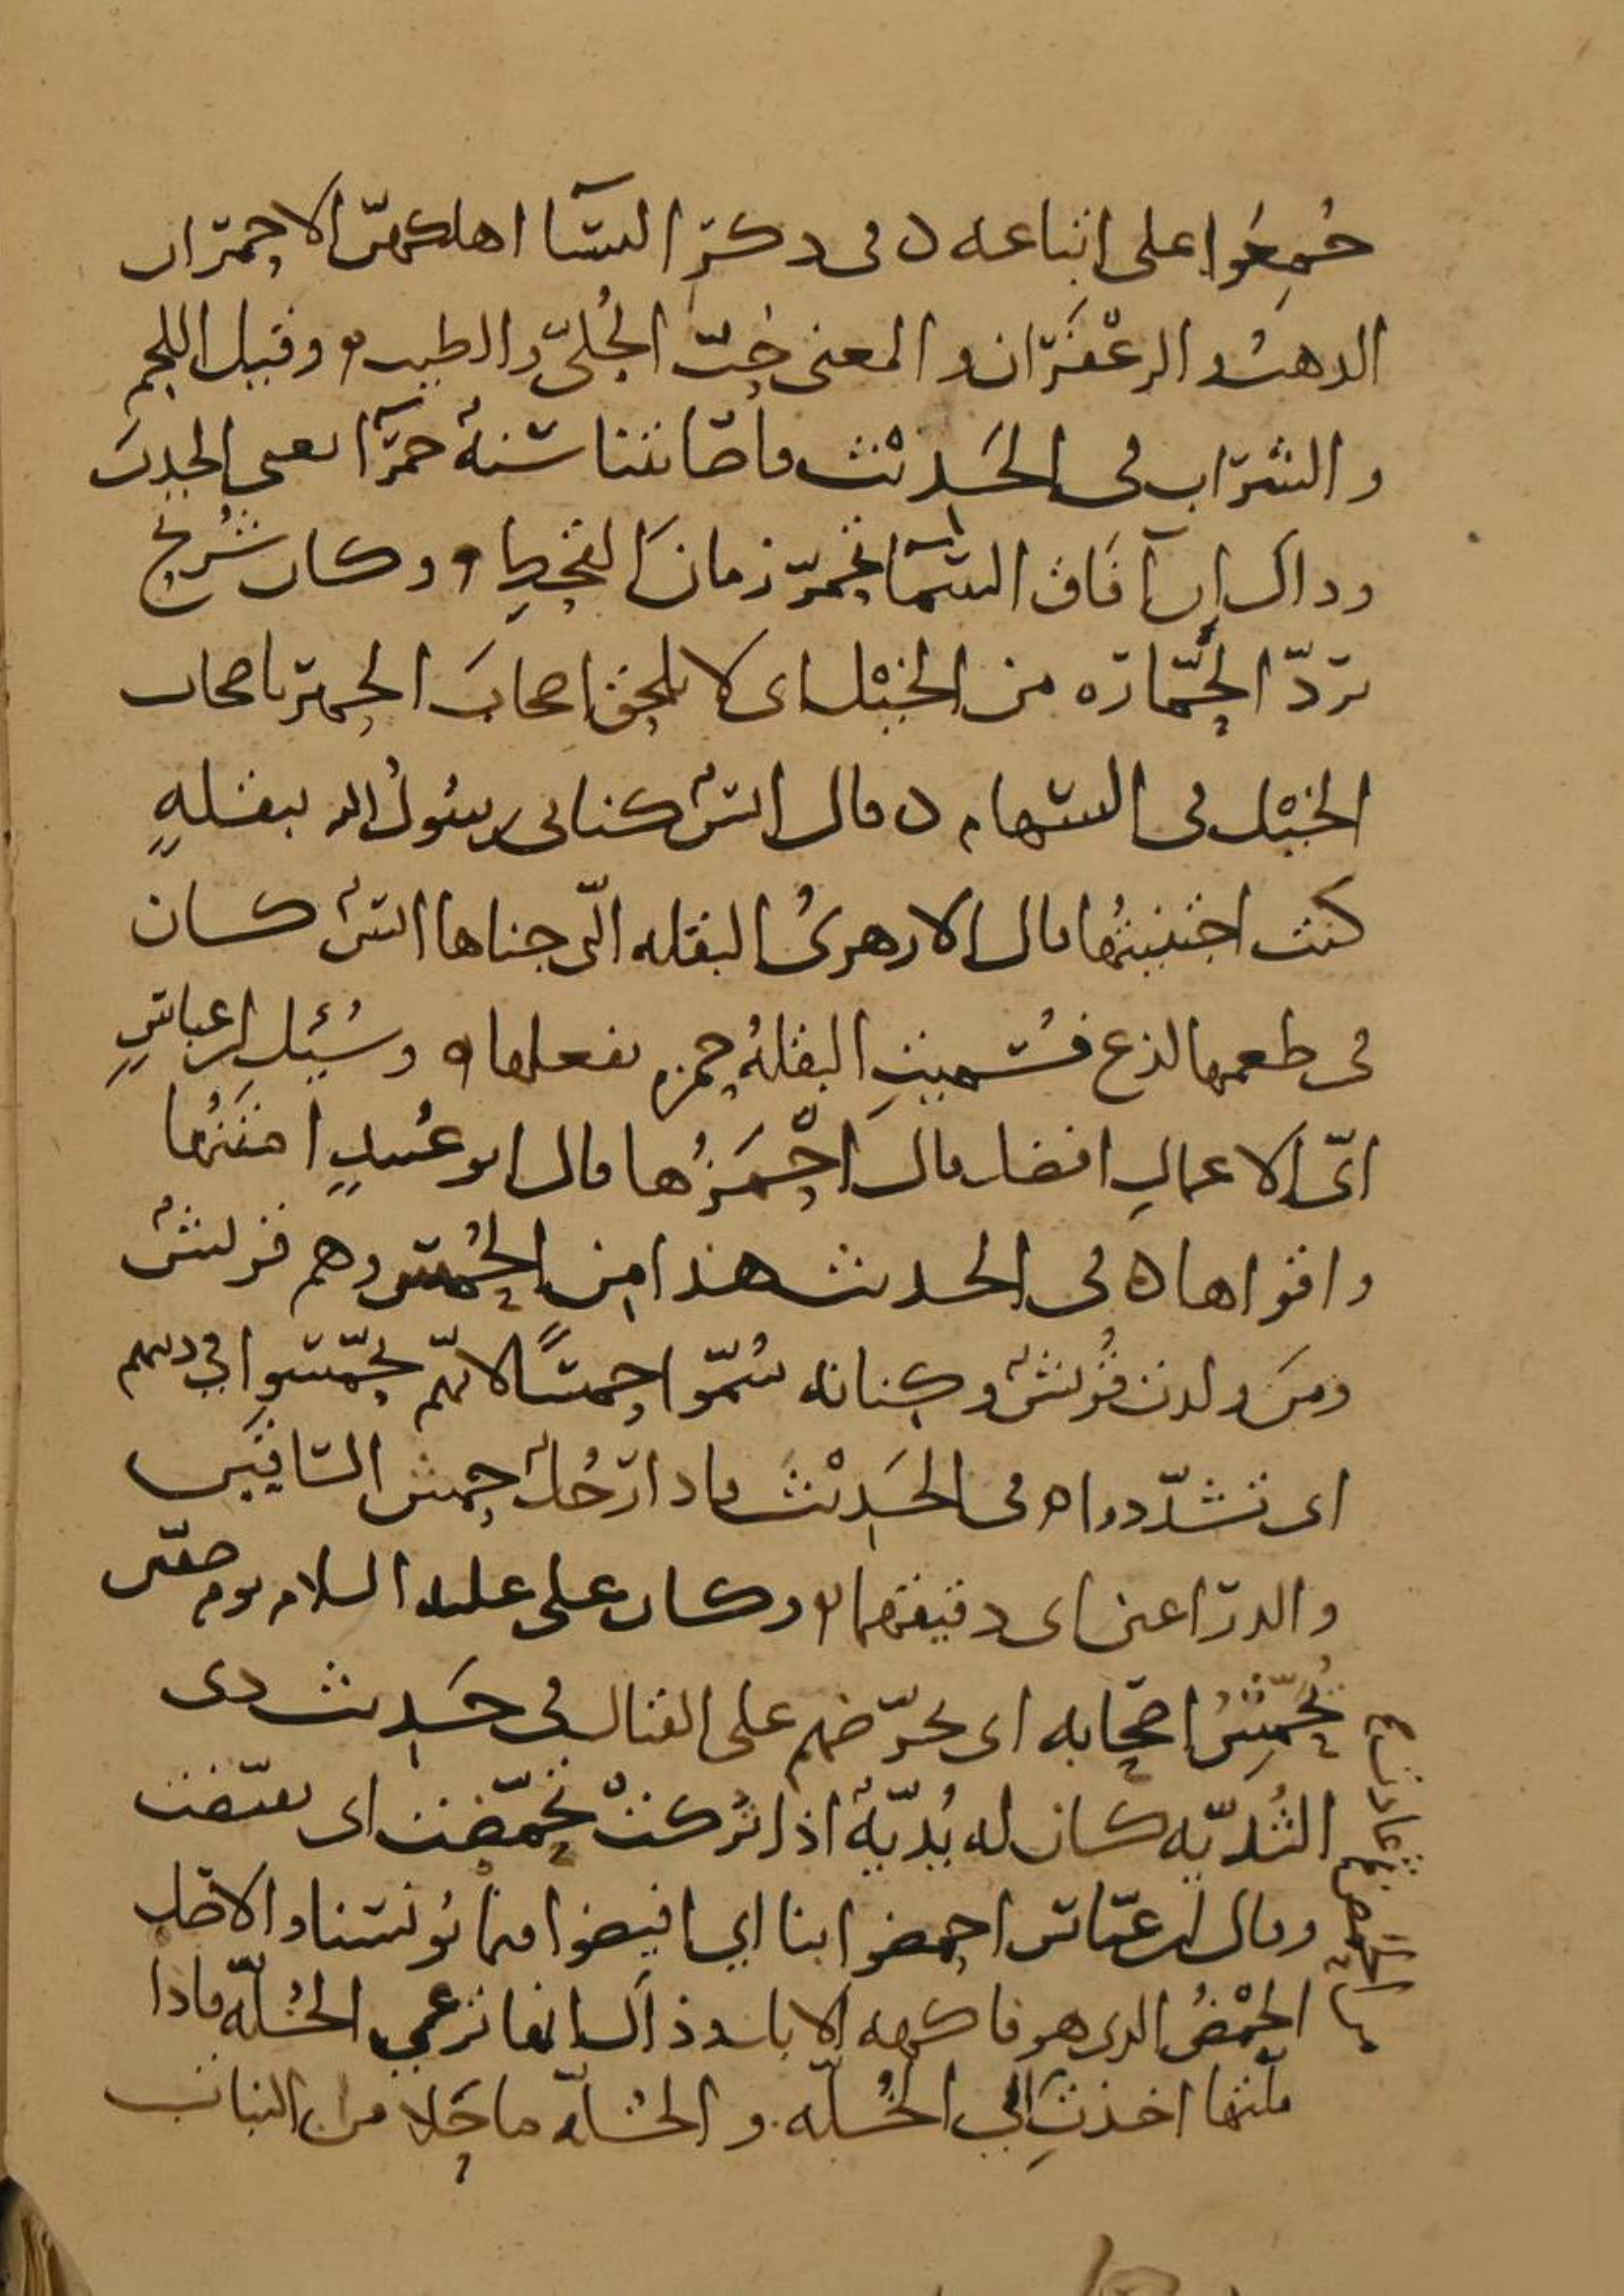 جُمِعُوا على اتباعه ٥ في ذكر النسآ اهلكهنّ الاحمران
الذهب والزعْفَران والمعنى حُبّ الحُليّ والطيب ٥ وقيل اللحم
والشراب في الحَديْث فاصابتنا سنةٌ حمرآ يعني الجدب
وذاك ان آفاق السّمآ تحمرّ زمانَ القحطِ ٥ وكان شُريح
يردّ الحَمّارة من الخيْل اى لا يلحق اصحابَ الحمير باصحاب
الخيْل في السهام ٥ قال انسٌ كناني رسُولُ الله ببقلةٍ
كنت اجتنيتُها قال الازهرىُ البقله التى جناها انسٌ كان
في طعمها لذع فسُميتِ البقلةُ حمزه بفعلها ٥ وسُئِل ابن عباسٍ
اىّ الاعمالِ افضل قال احْمَزُها قال ابو عُبيدٍ امتَنُها
واقواها ٥ في الحديث هذا من الحُمْسِ وهم قريشٌ
ومَن ولدت قُريشٌ وكنانه سُمّوا حمسًا لانهّم تحمّسوا في دينهم
اى تشدّدوا ٥ في الحَديْث فاذا رَجُلٌ حمش السّاقَين
والذراعين اى دقيقهما ٥ وكان علي عليه السلام يوم صفّين
يُحمِّشُ اصحابه اى يحرّضهم على القتال في حَديث ذى
الثُديّه كان له يُديّةٌ اذا تُركتْ تحمّضت اى تقبّضت
وقال ابن عبّاس احمضوا بنا اي افيضوا فيما يُونسنا والاصل
الحَمْضُ الذى هو فاكهه الابل وذاك انها ترعى الخُلّه فاذا
ملّتها اخذت الى الخُلّه والخُلّه ما حَلا من النبات